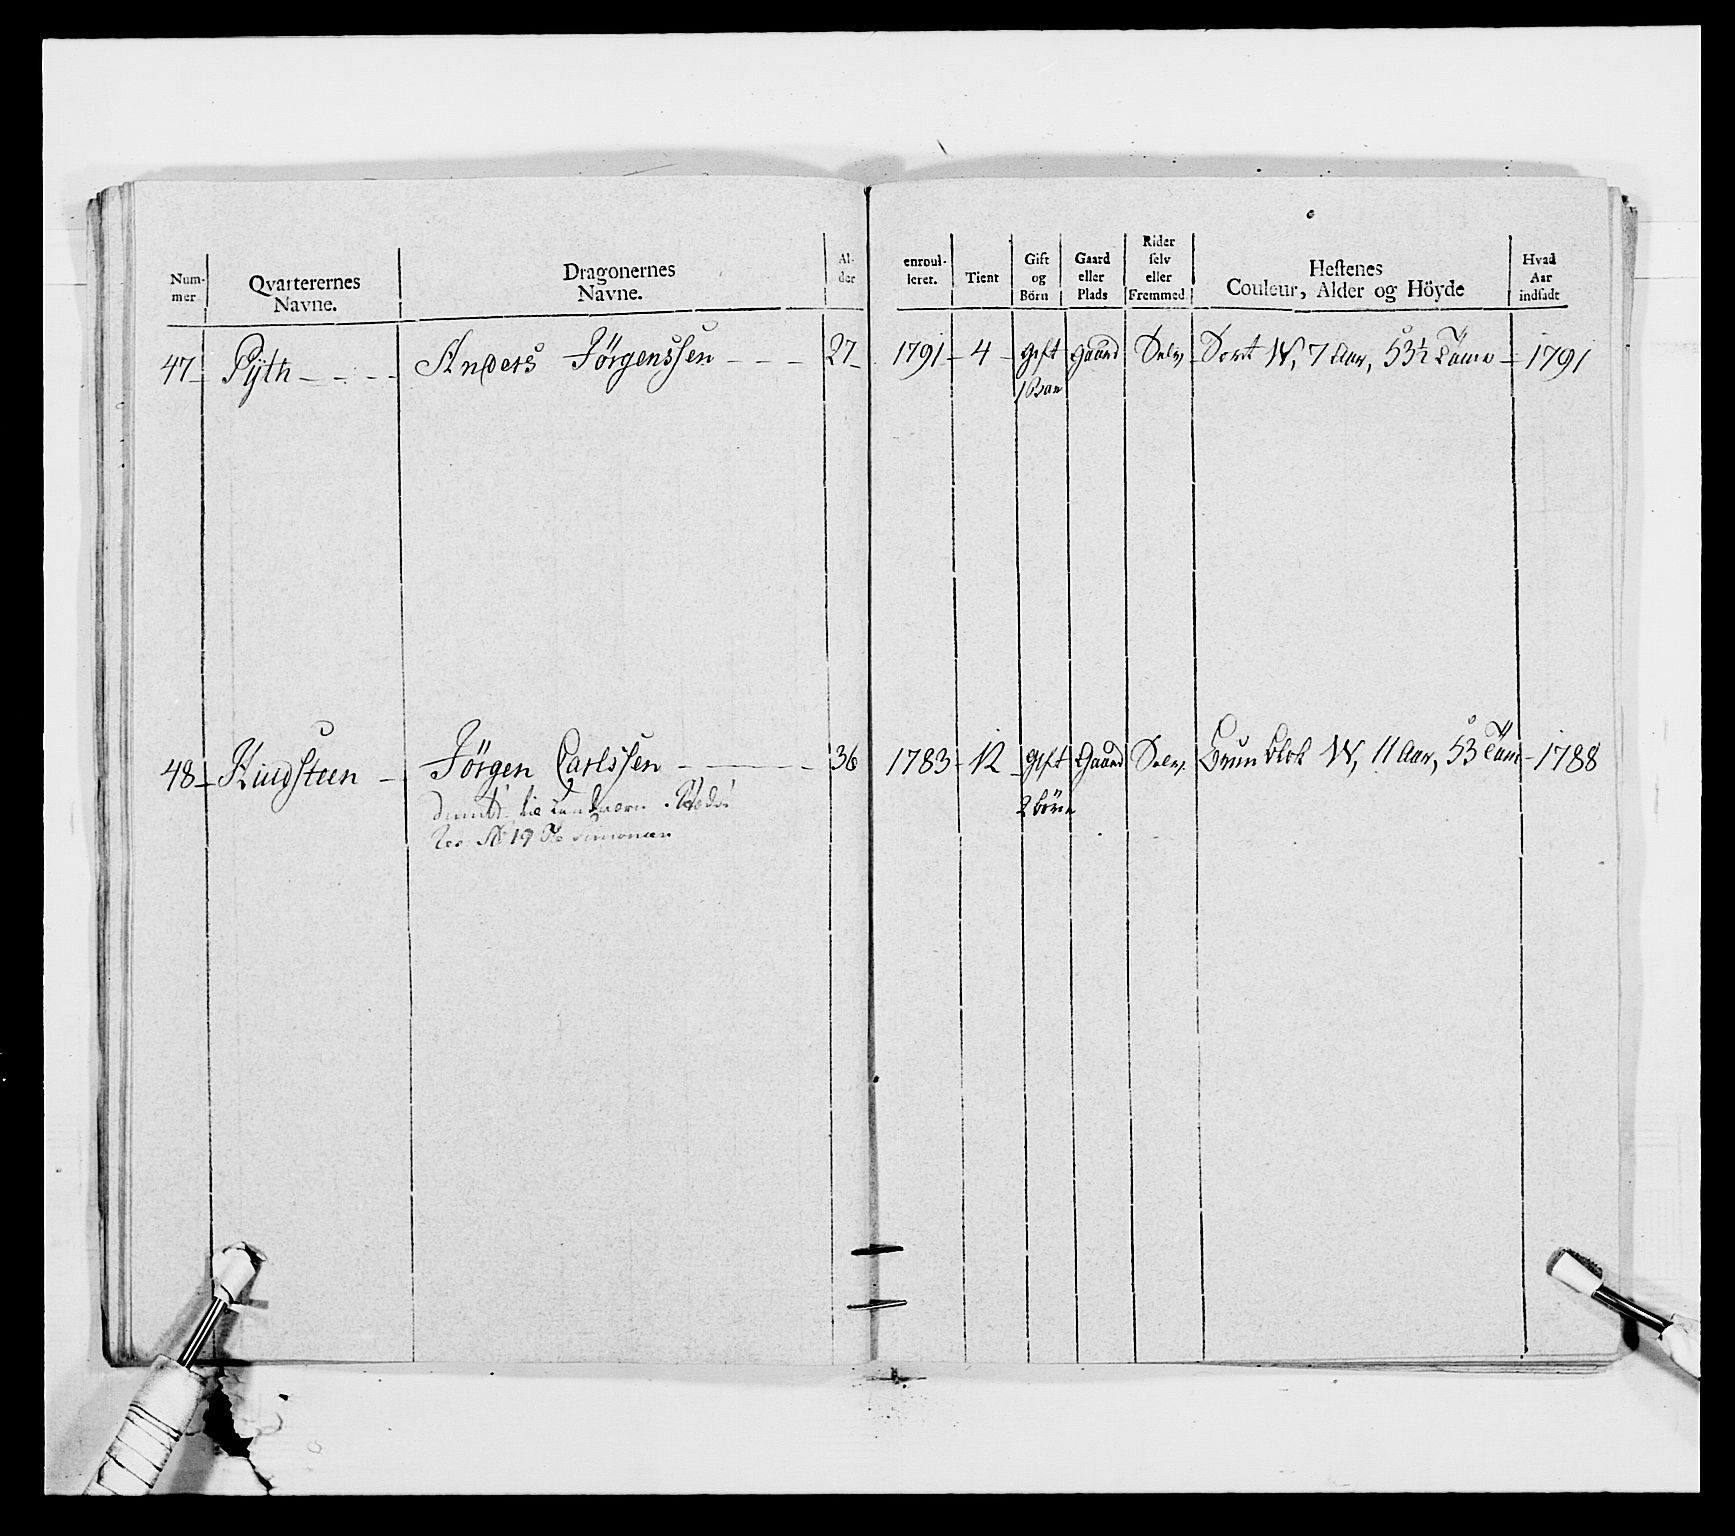 Num-
mer
Qvarterernes
Navne.
Dragonernes
Navne.
Al-
der
enroul-
leret.
Tient
Gift
og
Börn
Gaard
eller
Plads
Rider
selv
eller
Fremmed.
Hestenes
Couleur, Alder og Höyde
Hvad
Aar
indsadt
47 Pÿth Anders Jörgenssen 27 1791 4 gift gaard Selv Sort W, 7 Aar, 53½ Tomr 1791
1 Barn
48 Kindsteen Jörgen Carlssen 36 1783 12 gift Gaard Selv. Brunblok W, 11 Aar, 53 Tom 1788
2 börn
No 19